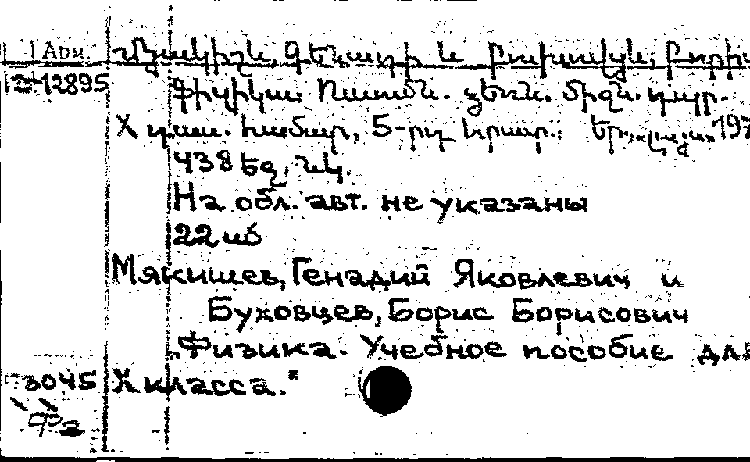 1 Арм. Մյակիշև, Գենադի և Բուխովցև, Բորիս
Э-12895 Ֆիզիկա. Ուսումն. ձեռն. միջն. դպր.
X դաս. համար, 5-րդ հրատ.: Եր., «Լույս» 197
438 էջ, նկ.
На обл. авт. не указаны
22
Мякишев, Генадий Яковлевич и
Буховцев, Борис Борисович
„Физика. Учебное пособие для
3045 X класса."